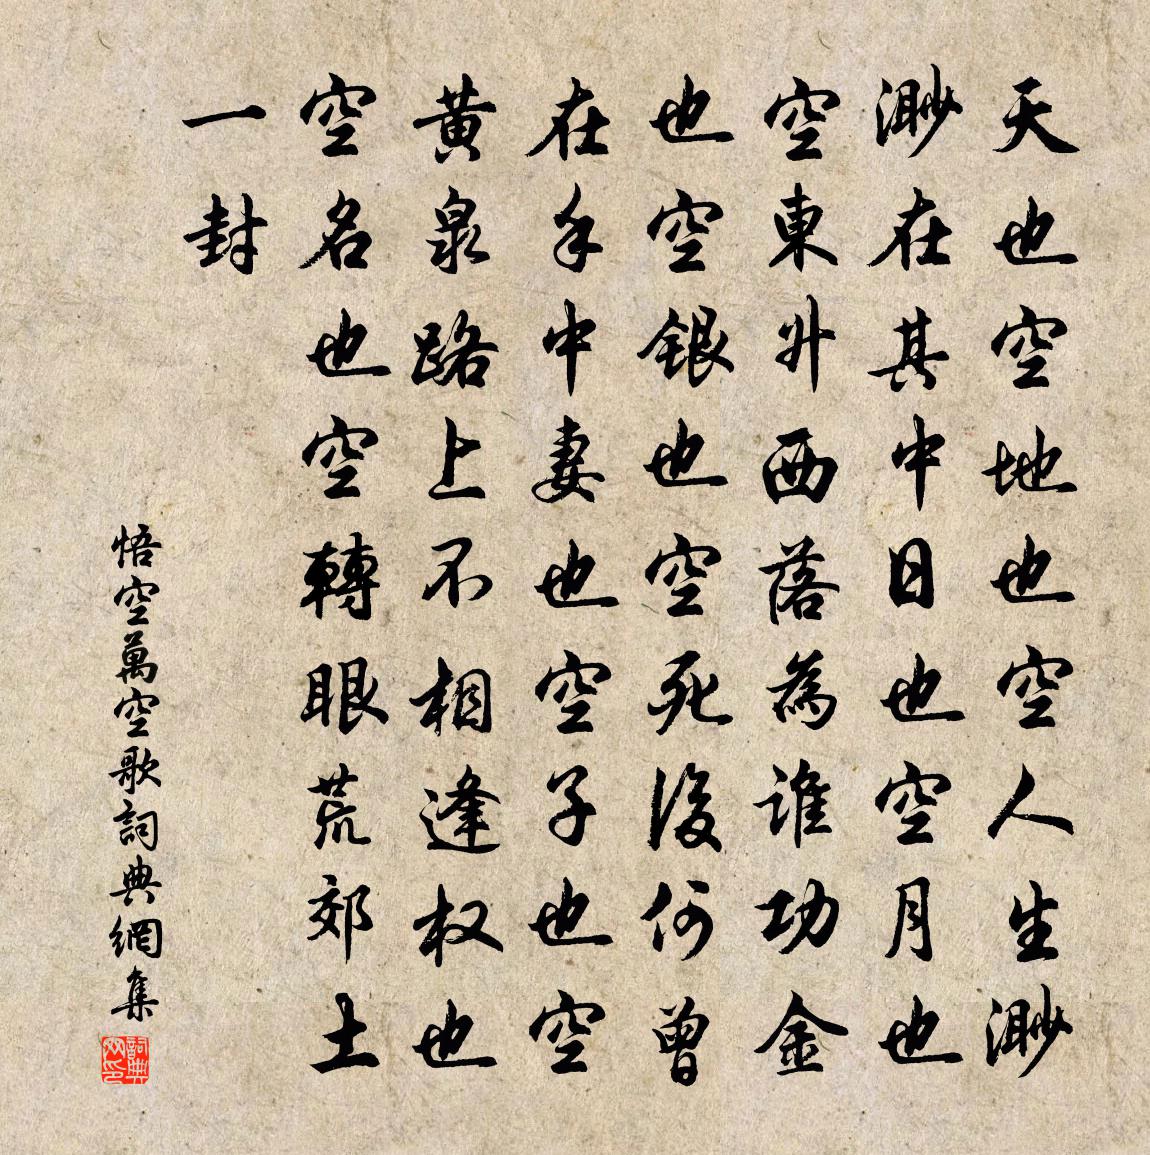 天也空地也空人生渺
渺在其中日也空月也
空東升西落為誰功金
也空銀也空死後何曾
在手中妻也空子也空
黄泉路上不相逢权也
空名也空轉眼荒郊土
一封
悟空萬空歌詞典網集
詞典网印